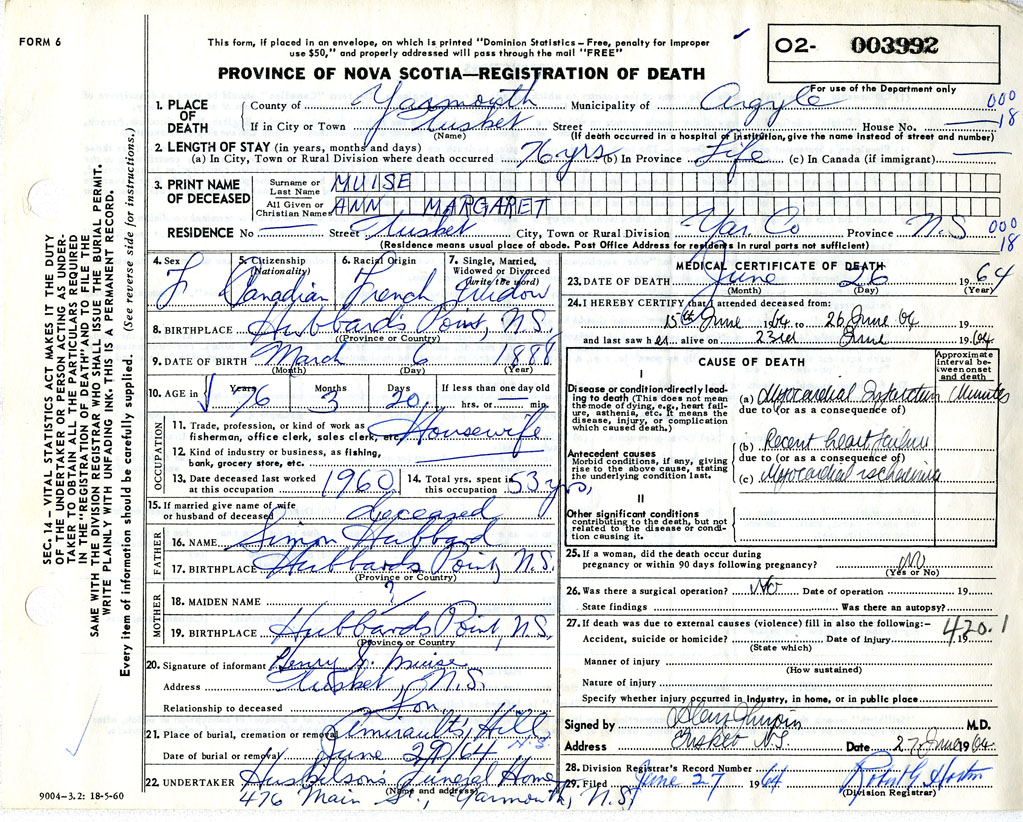 FORM 6
This form, if placed in an envelope, on which is printed "Dominion Statistics – Free, penalty for improper
use $50," and properly addressed will pass through the mail "FREE"
PROVINCE OF NOVA SCOTIA—REGISTRATION OF DEATH
O2- 003992
For use of the Department only
1. PLACE OF DEATH County of Yarmouth Municipality of Argyle 000
If in City or Town Tusket Street House No. 18
(Name) (If death occurred in a hospital or institution, give the name instead of street and number)
2. LENGTH OF STAY (in years, months and days)
(a) In City, Town or Rural Division where death occurred 76 yrs (b) In Province Life (c) In Canada (if immigrant)
3. PRINT NAME OF DECEASED
Surname or Last Name MUISE
All Given or Christian Names ANN MARGARET
RESIDENCE No Street Tusket City, Town or Rural Division Yar. Co Province N.S 000 18
(Residence means usual place of abode. Post Office Address for residents in rural parts not sufficient)
4. Sex F
5. Citizenship (Nationality) Canadian
6. Racial Origin French
7. Single, Married, Widowed or Divorced (write the word) Widow
8. BIRTHPLACE Hubbard's Point, N.S.
(Province or Country)
9. DATE OF BIRTH March 6 1888
(Month) (Day) (Year)
10. AGE in Years 76 Months 3 Days 20 If less than one day old hrs. or min.
OCCUPATION
11. Trade, profession, or kind of work as fisherman, office clerk, sales clerk, etc. Housewife
12. Kind of industry or business, as fishing, bank, grocery store, etc.
13. Date deceased last worked at this occupation 1960
14. Total yrs. spent in this occupation 53 yrs,
15. If married give name of wife or husband of deceased deceased
FATHER
16. NAME Simon Hubbard
17. BIRTHPLACE Hubbards Point, N.S.
(Province or Country)
MOTHER
18. MAIDEN NAME ?
19. BIRTHPLACE Hubbards Point, N.S.
(Province or Country)
20. Signature of informant Henry S. Muise
Address Tusket, N.S.
Relationship to deceased Son
21. Place of burial, cremation or removal Amirault's Hill N.S.
Date of burial or removal June 29/64
22. UNDERTAKER Husbilsons Funeral Home
(Name and address)
476 Main St., Yarmouth, N.S
9004-3.2: 18-5-60
MEDICAL CERTIFICATE OF DEATH
23. DATE OF DEATH June 26 1964
(Month) (Day) (Year)
24. I HEREBY CERTIFY that I attended deceased from:
15th June 1964 to 26 June 64 19
and last saw her alive on 23rd June 1964
CAUSE OF DEATH
Approximate interval between onset and death
I
Disease or condition directly leading to death (This does not mean the mode of dying, e.g., heart failure, asthenia, etc. It means the disease, injury, or complication which caused death.)
(a) Myocardial Infarction Minutes
due to (or as a consequence of)
Antecedent causes
Morbid conditions, if any, giving rise to the above cause, stating the underlying condition last.
(b) Recent heart failure
due to (or as a consequence of)
(c) Myocardial ischaemia
II
Other significant conditions contributing to the death, but not related to the disease or condition causing it.
25. If a woman, did the death occur during pregnancy or within 90 days following pregnancy? No
(Yes or No)
26. Was there a surgical operation? No Date of operation 19
State findings Was there an autopsy?
27. If death was due to external causes (violence) fill in also the following:– 420.1
Accident, suicide or homicide? Date of injury 19
(State which)
Manner of injury
(How sustained)
Nature of injury
Specify whether injury occurred in industry, in home, or in public place
Signed by M.D.
Address Tusket N.S. Date 27 June 1964
28. Division Registrar's Record Number
29. Filed June 27 1964 Robt G Horton
(Division Registrar)
SEC. 14 – VITAL STATISTICS ACT MAKES IT THE DUTY
OF THE UNDERTAKER OR PERSON ACTING AS UNDER-
TAKER TO OBTAIN ALL THE PARTICULARS REQUIRED
IN THE "REGISTRATION OF DEATH" AND TO FILE THE
SAME WITH THE DIVISION REGISTRAR WHO SHALL ISSUE THE BURIAL PERMIT.
WRITE PLAINLY WITH UNFADING INK. THIS IS A PERMANENT RECORD.
Every item of information should be carefully supplied. (See reverse side for instructions.)